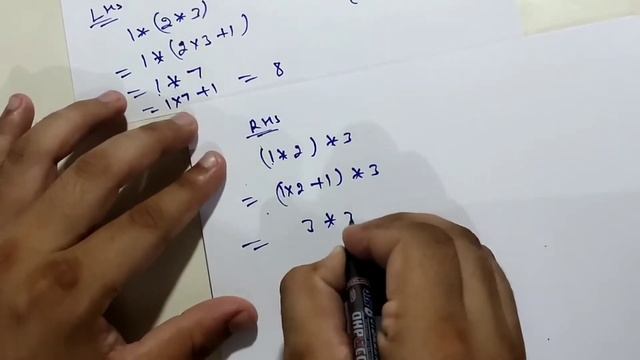 LHS
1 * (2 * 3)
= 1 * (2×3+1)
= 1 * 7
= 1×7+1 = 8
RHS
(1 * 2) * 3
= (1×2+1) * 3
= 3 * 3
OHP